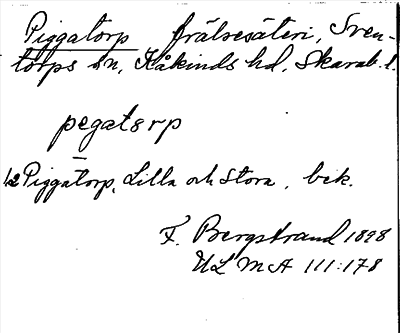 Piggatorp frälsesäteri, Sven-
torps sn, Kåkinds hd, Skarab. l.
pegatorp
1/2 Piggatorp, Lilla och Stora, bik.
F. Bergstrand 1898
ULMA 111:178